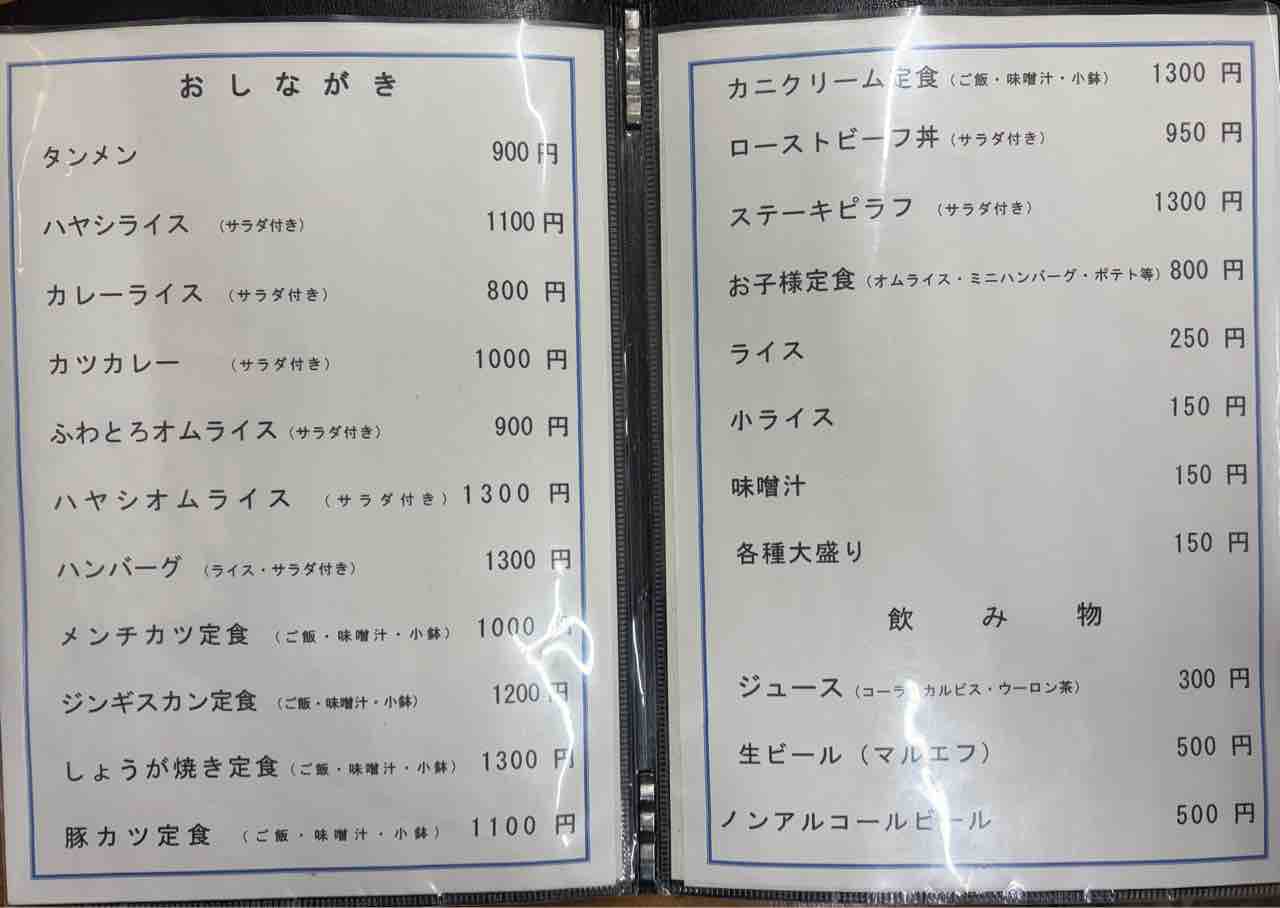 おしながき
タンメン 900円
ハヤシライス （サラダ付き） 1100円
カレーライス （サラダ付き） 800 円
カツカレー （サラダ付き） 1000 円
ふわとろオムライス（サラダ付き） 900 円
ハヤシオムライス （サラダ付き） 1300 円
ハンバーグ （ライス・サラダ付き） 1300 円
メンチカツ定食 （ご飯・味噌汁・小鉢） 1000 円
ジンギスカン定食 （ご飯・味噌汁・小鉢） 1200円
しょうが焼き定食（ご飯・味噌汁・小鉢） 1300 円
豚カツ定食 （ご飯・味噌汁・小鉢） 1100 円
カニクリーム定食（ご飯・味噌汁・小鉢） 1300 円
ローストビーフ丼（サラダ付き） 950 円
ステーキピラフ （サラダ付き） 1300 円
お子様定食（オムライス・ミニハンバーグ・ポテト等）800 円
ライス 250 円
小ライス 150 円
味噌汁 150 円
各種大盛り 150 円
飲み物
ジュース（コーラ・カルピス・ウーロン茶） 300 円
生ビール（マルエフ） 500 円
ノンアルコールビール 500 円